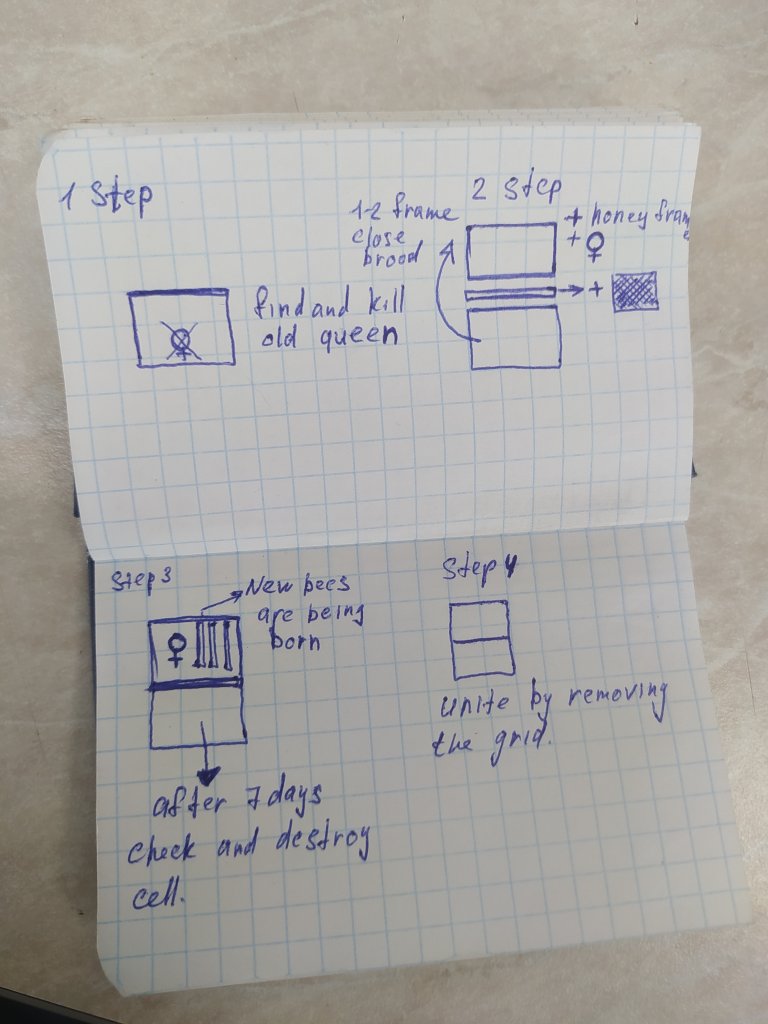 1 Step
find and kill
old queen
2 Step
1-2 frame
close
brood
+ honey frame
+ ♀
+
Step 3
New bees
are being
born
♀
after 7 days
check and destroy
cell.
Step 4
unite by removing
the grid.